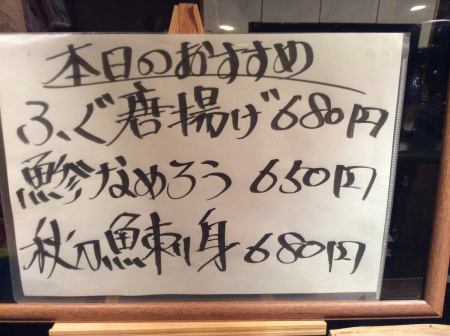 本日のおすすめ
ふぐ唐揚げ680円
鯵なめろう 650円
秋刀魚刺り身 680円